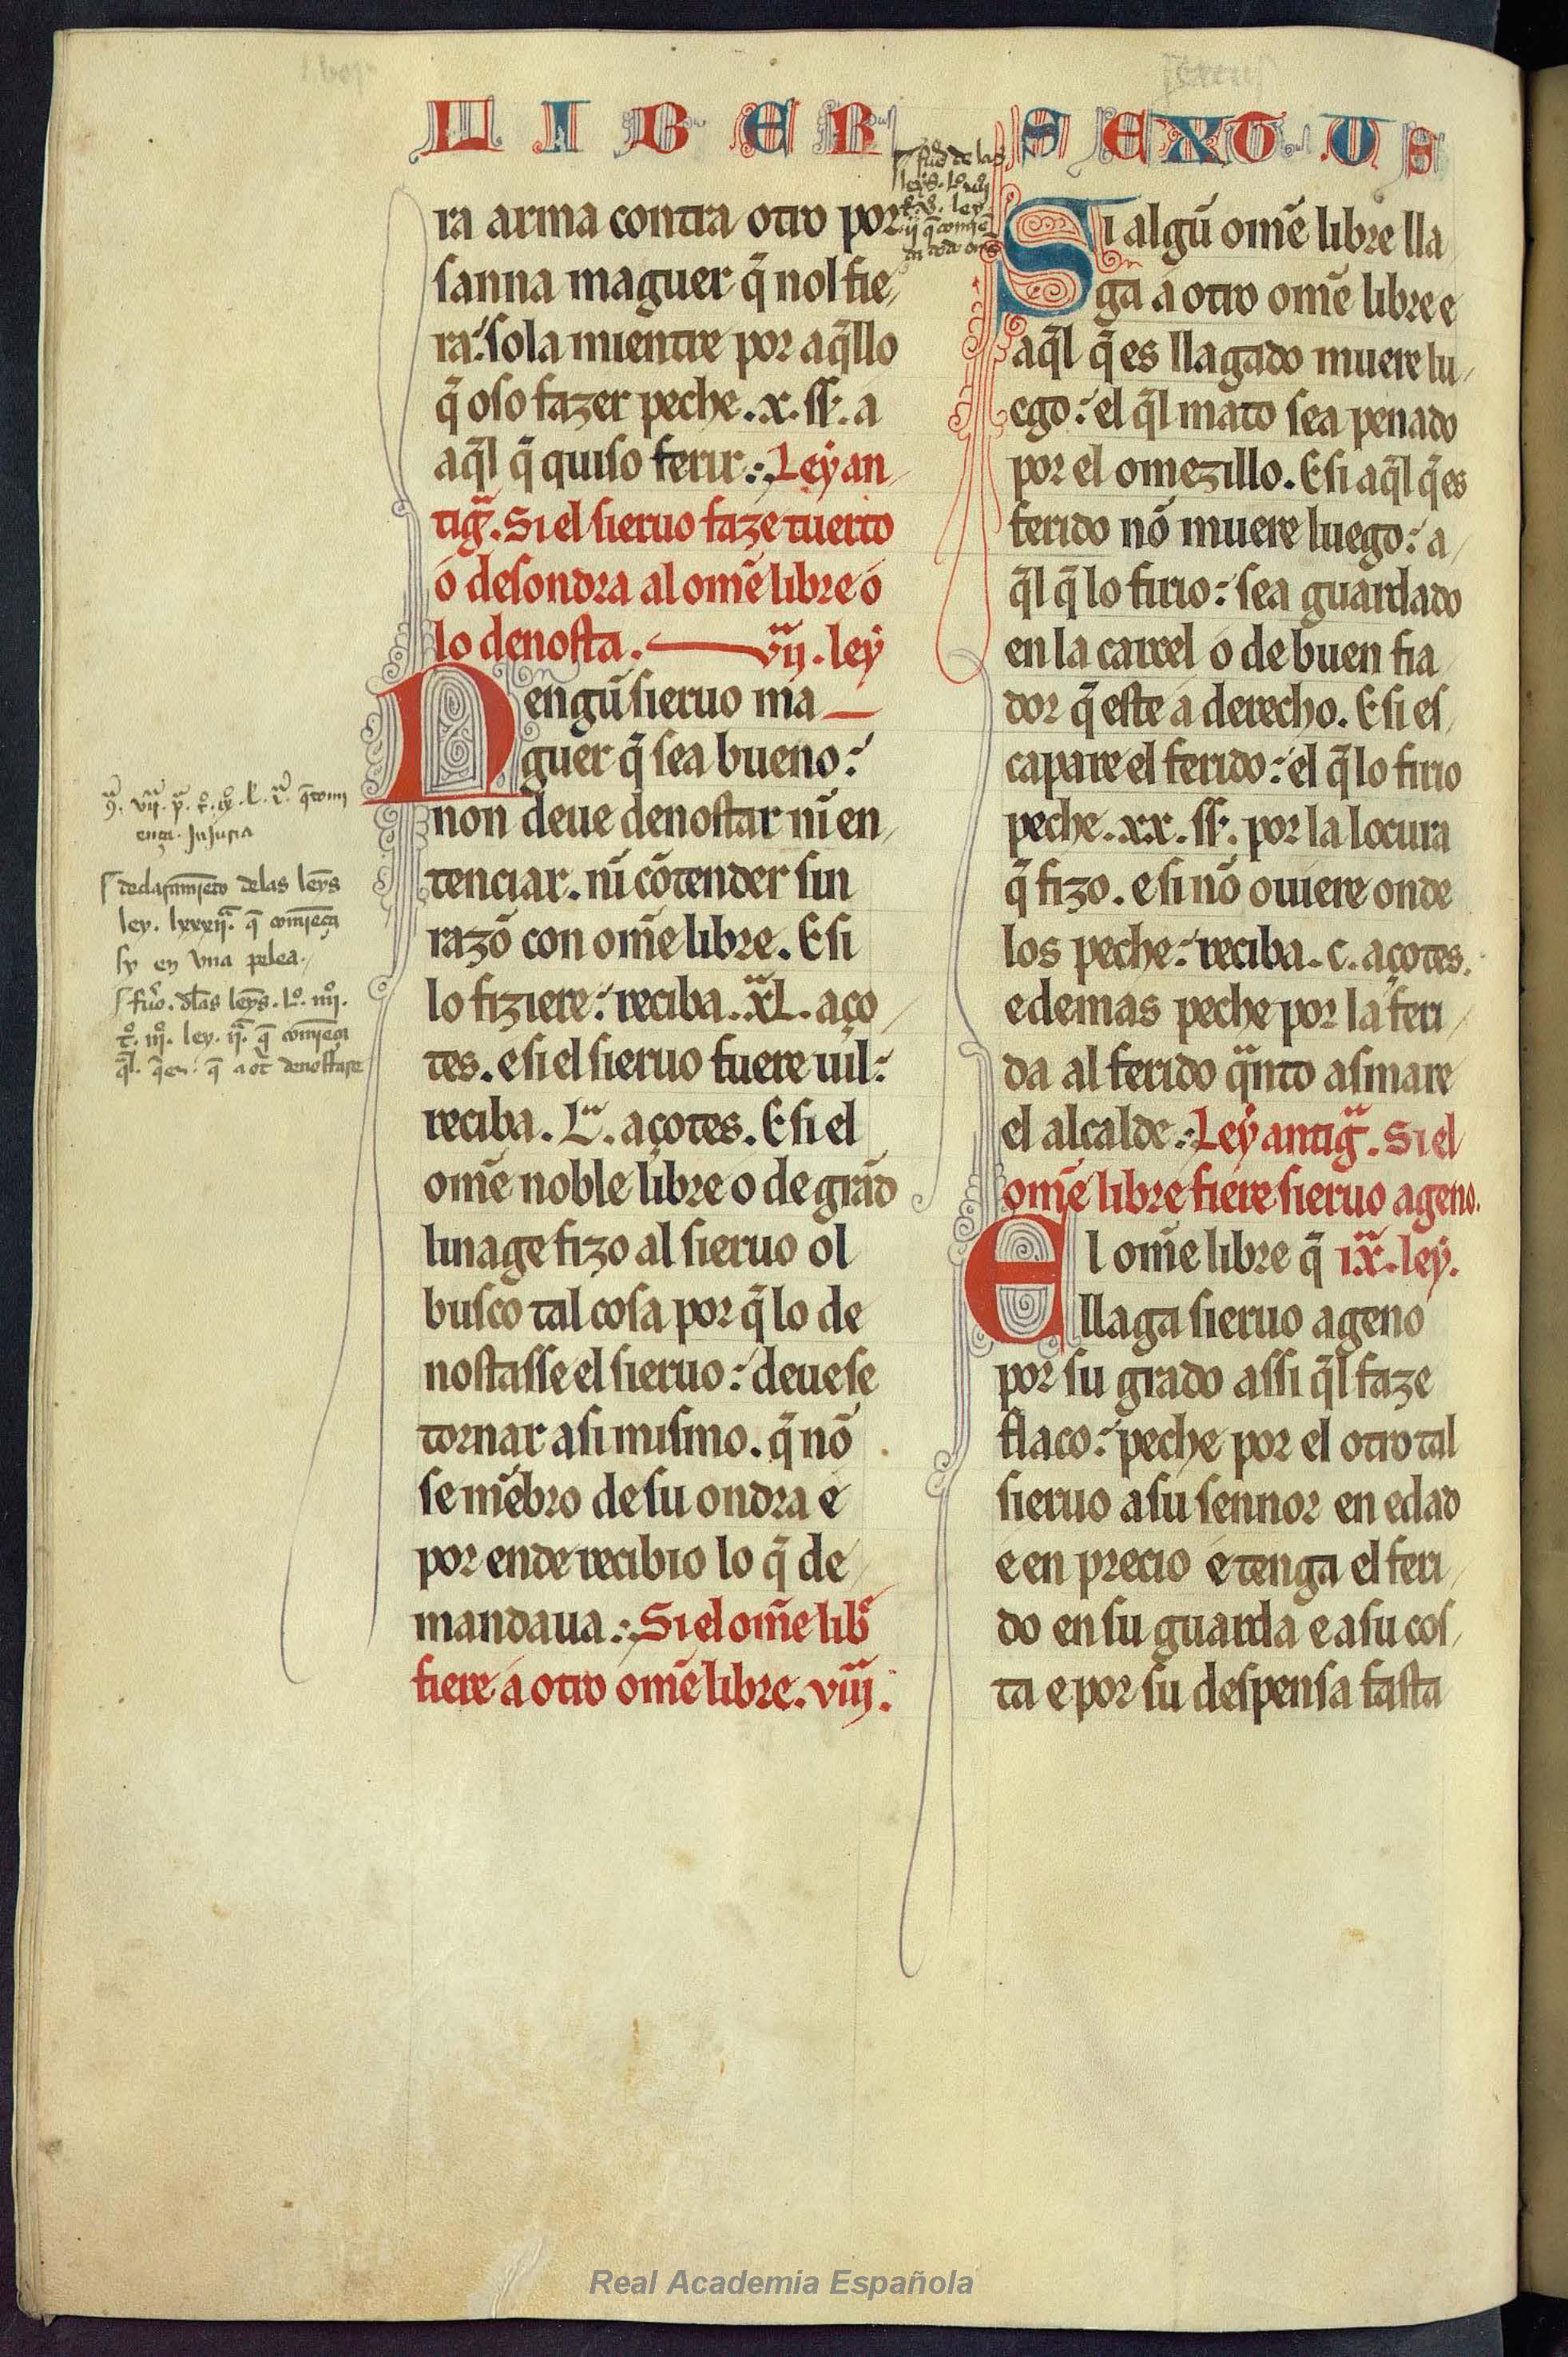 LIBER SEXTUS
ra arma contra otro por
sanna maguer q̃ nol fie/
ra: sola mientre por aq̃llo
q̃ oso fazer peche .x. ss. a
aq̃l q̃ quiso ferir: Ley an/
tigᵃ. Si el sieruo faze tuerto
o desondra al om̃e libre o
lo denosta. vijᵃ. ley
Nengũ sieruo ma
guer q̃ sea bueno:
non deue denostar nĩ en/
tenciar. nĩ cõtender sin
razõ con om̃e libre. E si
lo fiziere: reciba .xLᵃ. aço/
tes. e si el sieruo fuere uil:
reciba .Lᵃ. açotes. E si el
om̃e noble libre o de grãd
linage fizo al sieruo ol
busco tal cosa por q̃ lo de
nostasse el sieruo: deuese
tornar asi mismo. q̃ nõ
se mẽbro de su ondra e
por ende recibio lo q̃ de/
mandaua: Si el om̃e libᵉ
fiere a otro om̃e libre. viijᵃ.
Si algũ om̃e libre lla/
ga a otro om̃e libre e
aq̃l q̃ es llagado muere lu/
ego: el q̃l mato sea penado
por el omezillo. E si aq̃l q̃ es
ferido nõ muere luego: a/
q̃l q̃ lo firio: sea guardado
en la carcel o de buen fia/
dor q̃ este a derecho. E si es/
capare el ferido: el q̃ lo firio
peche .xx. ss. por la locura
q̃ fizo. e si nõ ouiere onde
los peche: reciba .c. açotes.
e demas peche por la feri/
da al ferido qᵃnto asmare
el alcalde: Ley antigᵃ. Si el
om̃e libre fiere sieruo ageno.
El om̃e libre q̃ ixᵃ. ley.
llaga sieruo ageno
por su grado assi q̃l faze
flaco: peche por el otro tal
sieruo a su sennor en edad
e en precio e tenga el feri/
do en su guarda e a su cos/
ta e por su despensa fasta
declaramjẽto delas leyes
ley. lxxxijᵃ. q̃ comjẽça
sy en vna pelea.
fuᵒ. dlas leyes. Lᵒ. iiijᵒ.
tᵒ. iijᵒ. ley. ijᵃ. q̃ comjẽça
Real Academia Española